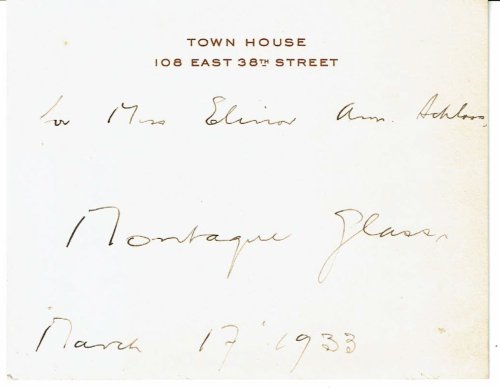 TOWN HOUSE
108 EAST 38TH STREET
for Miss Elinor Ann. Schloss,
Montague Glass,
March 17 1933